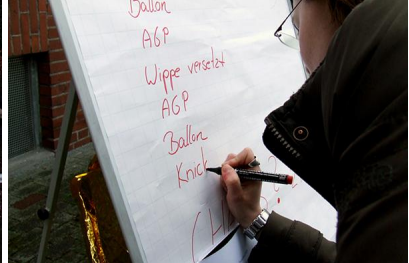 Ballon
AGP
Wippe versetzt
AGP
Ballon
Knick